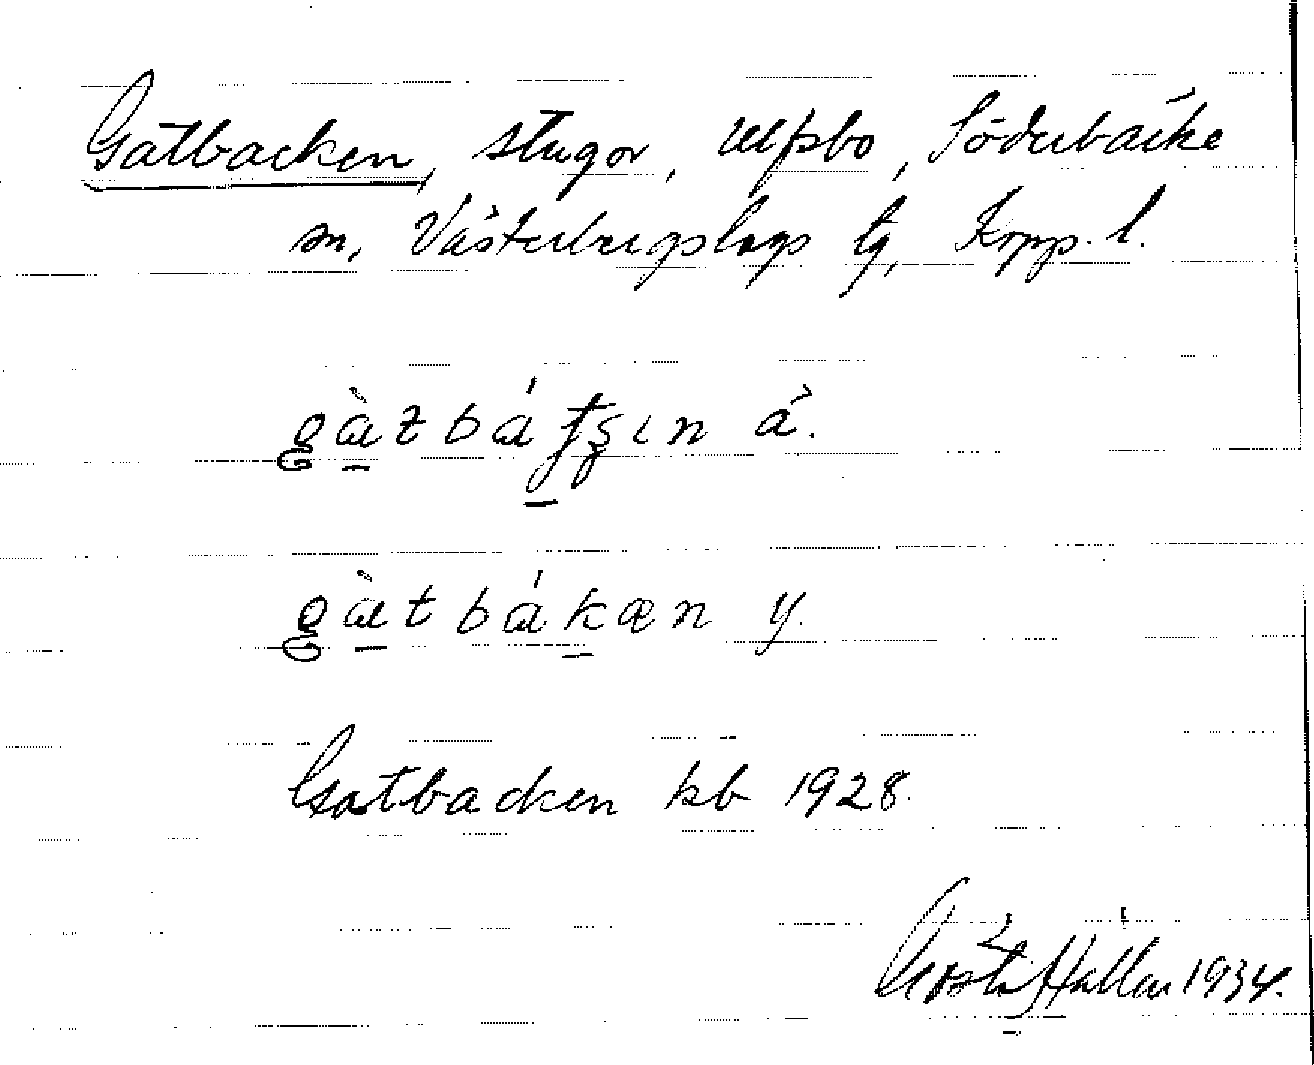 Gatbacken, stugor, Ulfsbo, Söderbärke
sn, Västerbergslags tg, Kopp. l.
gàtbáʈʂın ä.
gàtbákæn y.
Gatbacken kb 1928.
Gösta Hallén 1934.